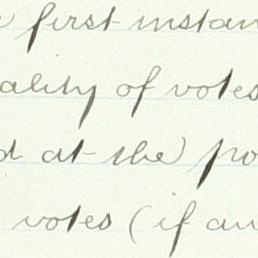 first instan
ality of votes
d at the po
votes (if an